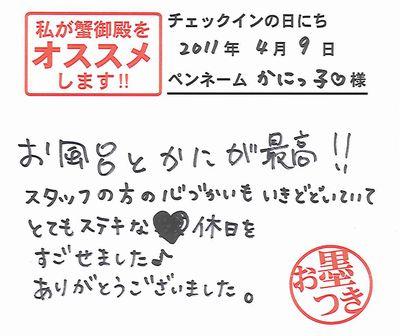 私が蟹御殿を
オススメ
します!!
チェックインの日にち
2011年 4月 9日
ペンネーム かにっ子♡様
お風呂とかにが最高!!
スタッフの方の心づかいもいきとどいていて
とてもステキな♥休日を
すごせました♪
ありがとうございました。
お墨つき